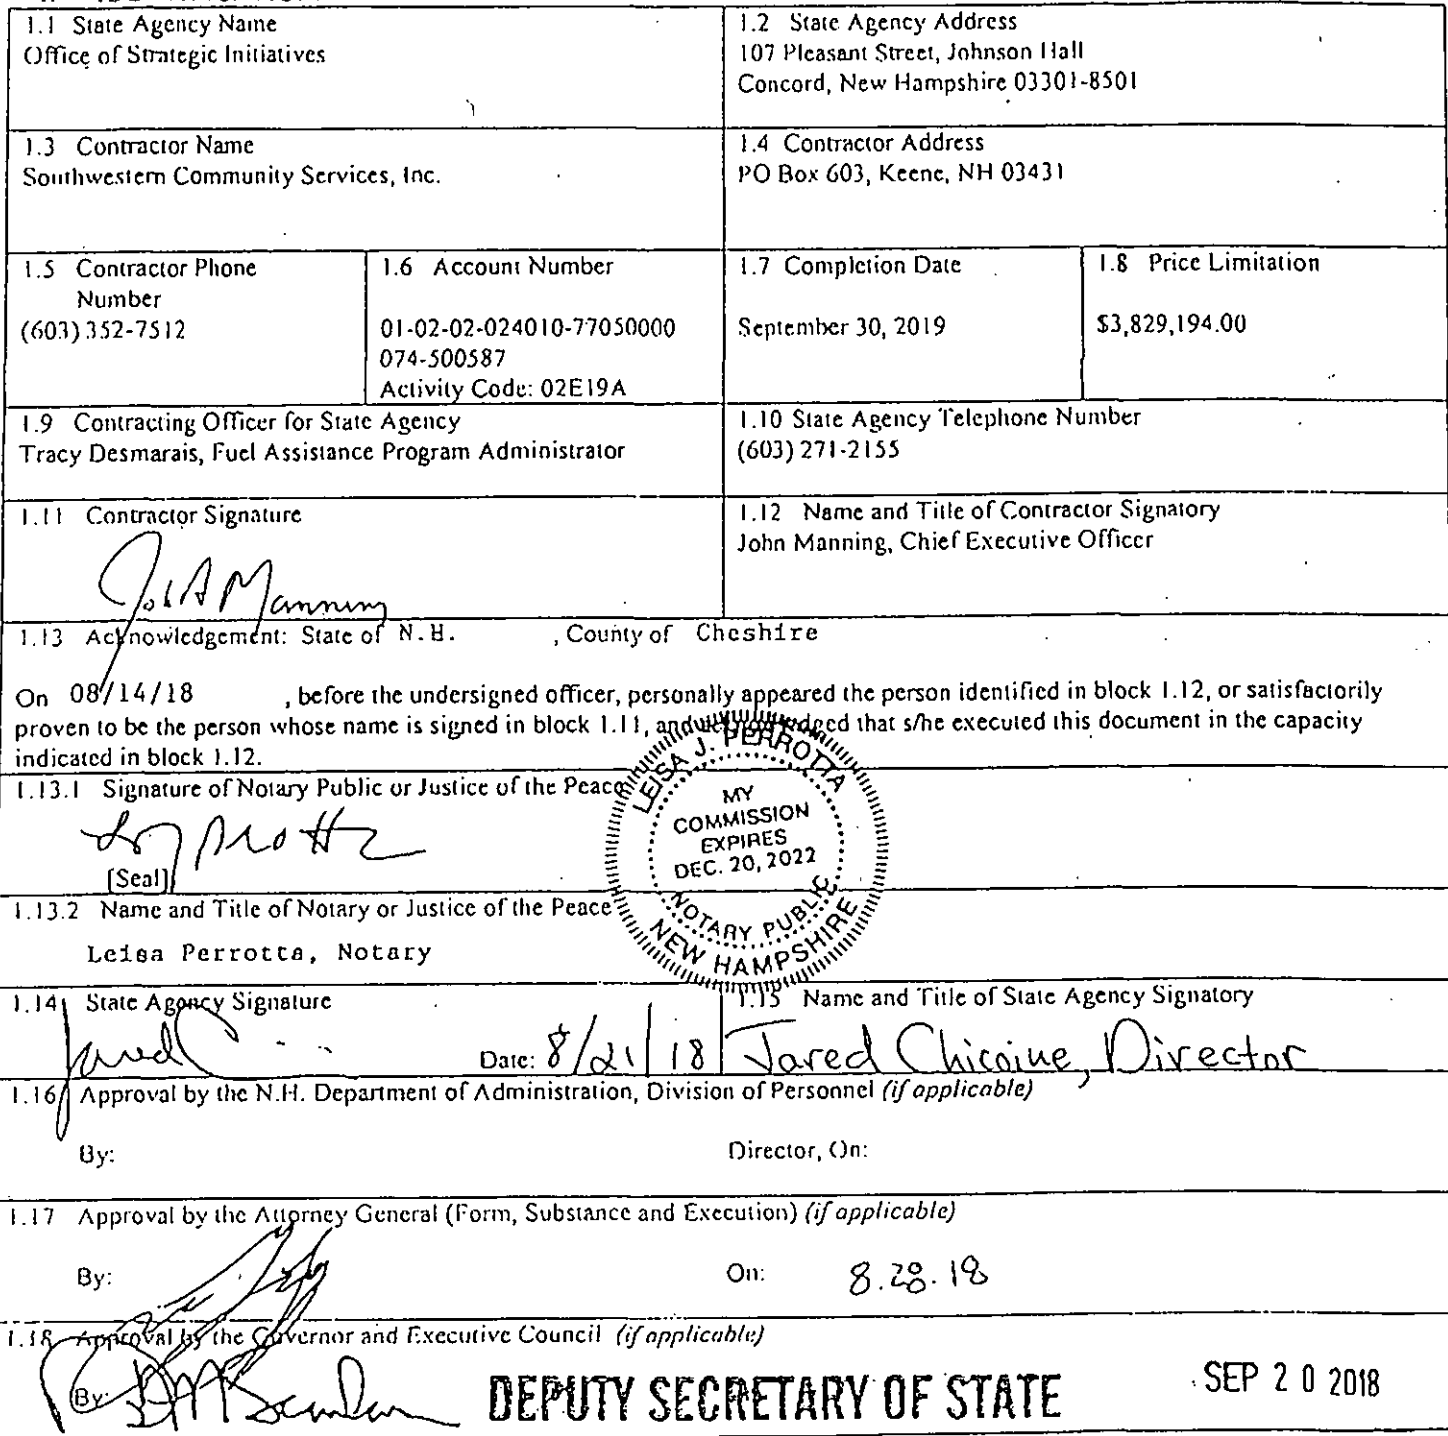 1.1 State Agency Name
Office of Strategic Initiatives
1.2 State Agency Address
107 Pleasant Street, Johnson Hall
Concord, New Hampshire 03301-8501
1.3 Contractor Name
Southwestern Community Services, Inc.
1.4 Contractor Address
PO Box 603, Keene, NH 03431
1.5 Contractor Phone
Number
(603) 352-7512
1.6 Account Number
01-02-02-024010-77050000
074-500587
Activity Code: 02E19A
1.7 Completion Date
September 30, 2019
1.8 Price Limitation
$3,829,194.00
1.9 Contracting Officer for State Agency
Tracy Desmarais, Fuel Assistance Program Administrator
1.10 State Agency Telephone Number
(603) 271-2155
1.11 Contractor Signature
Manning
1.12 Name and Title of Contractor Signatory
John Manning, Chief Executive Officer
1.13 Acknowledgement: State of N.H. , County of Cheshire
On 08/14/18 , before the undersigned officer, personally appeared the person identified in block 1.12, or satisfactorily
proven to be the person whose name is signed in block 1.11, and acknowledged that s/he executed this document in the capacity
indicated in block 1.12.
1.13.1 Signature of Notary Public or Justice of the Peace
[Seal]
LEISA J. PERROTTA
MY
COMMISSION
EXPIRES
DEC. 20, 2022
NOTARY PUBLIC
NEW HAMPSHIRE
1.13.2 Name and Title of Notary or Justice of the Peace
Leisa Perrotta, Notary
1.14 State Agency Signature
Jared C
Date: 8/21/18
1.15 Name and Title of State Agency Signatory
Jared Chicoine, Director
1.16 Approval by the N.H. Department of Administration, Division of Personnel (if applicable)
By:
Director, On:
1.17 Approval by the Attorney General (Form, Substance and Execution) (if applicable)
By:
On: 8.28.18
1.18 Approval by the Governor and Executive Council (if applicable)
By:
DEPUTY SECRETARY OF STATE
SEP 20 2018